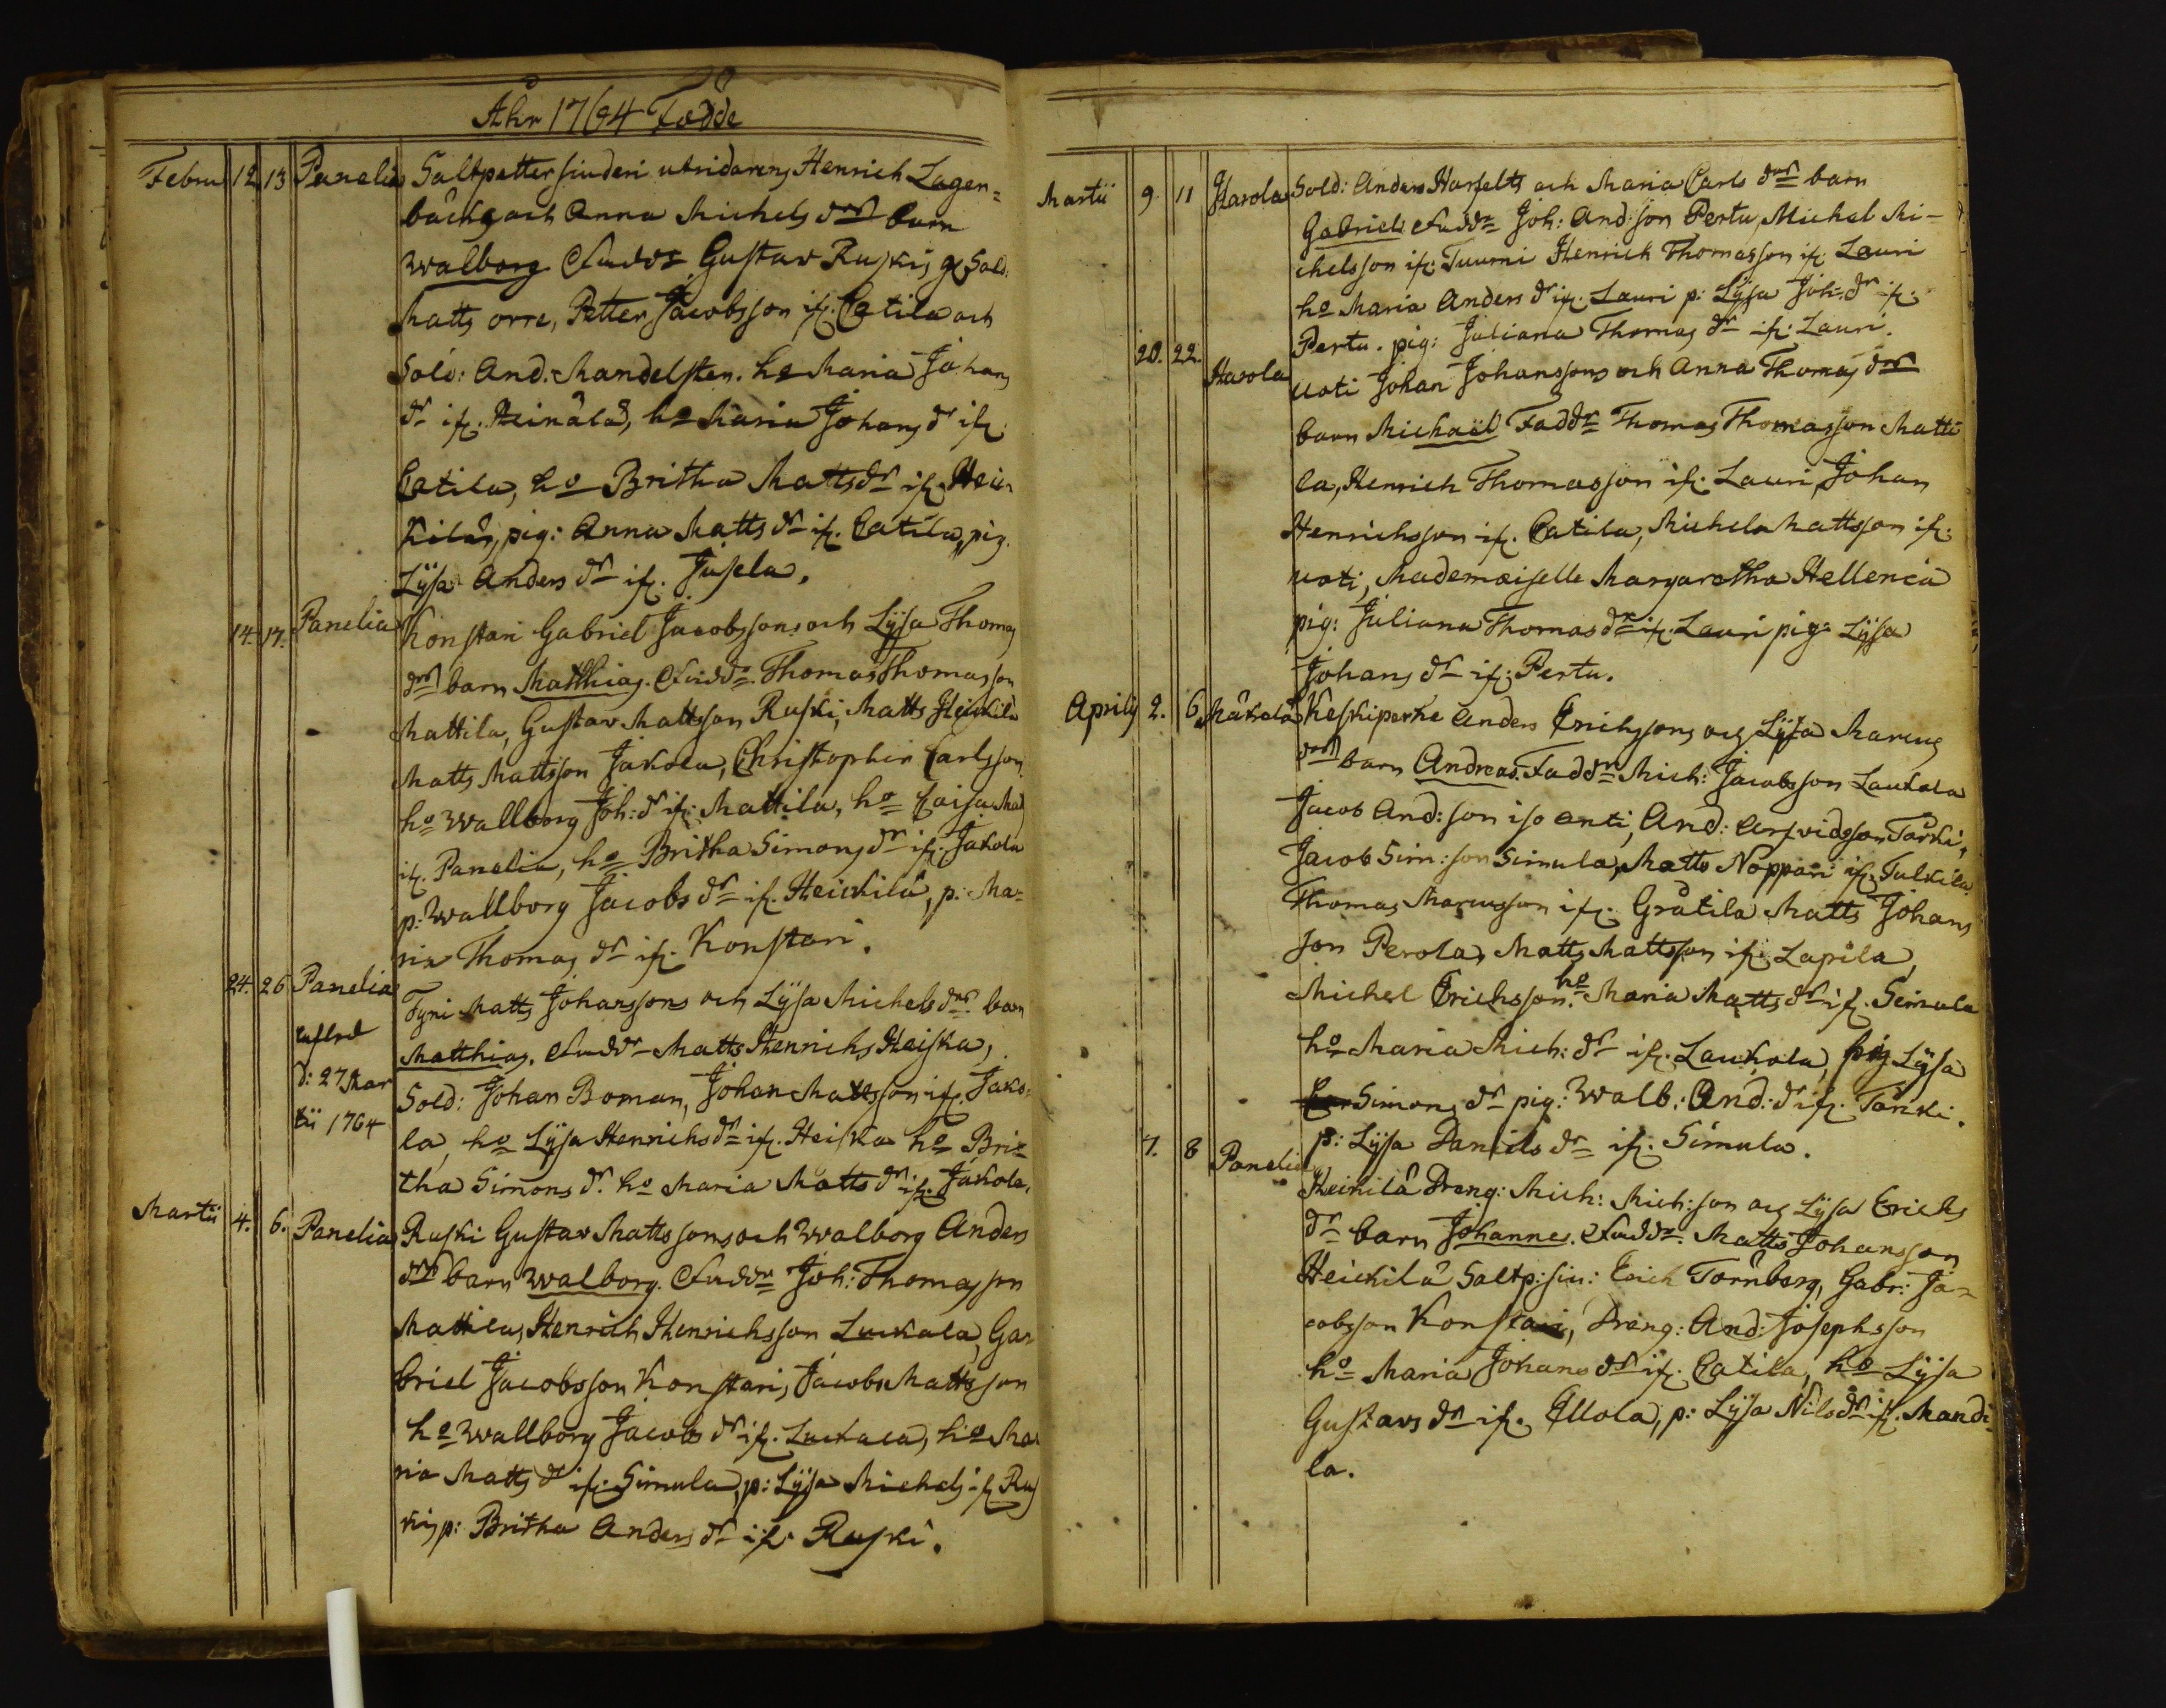 Åhr 1764 Födde
Febru 12 13 Panelia Saltpettersiuderi utridarens Henrich Lager=
bäcks och Anna Michels dr barn
Walborg Faddr Gustav Ruski, Sold:
Matts orre, Petter Jacobsson if. Catila och
Sold: And. Mandelsten. ho Maria Johans
dr if. Heinälä, ho Maria Johans dr if.
Catila, ho Britha Mattsdr if. Hei=
kilä, pig: Anna Matts dr if. Catila, pig.
Lÿsa Anders dr if. Jusela.
14. 17. Panelia Konstari Gabriel Jacobssons och Lÿsa Thomas
dr barn Matthias. Faddr. Thomas Thomasson
Mattila, Gustav Mattsson Ruski, Matts Heickilä
Matts Mattsson Jakola, Christopher Carlsson
ho Wallborg Joh: dr if: Mattila, ho Caisa Mad
if. Panelia, ho Britha Simons dr if. Jakola
p: Wallborg Jacobs dr if. Heickilä, p: Ma=
ria Thomas dr if. Konstari.
24. 26 Panelia Tyni Matts Johanssons och Lÿsa Michels dr barn
Matthias. Faddr Matts Henrichs Heiska,
d: 27 Mar
Sold: Johan Boman, Johan Mattsson if. Jako=
tii 1764
la, ho Lÿsa Henrichs dr if. Heiska ho Bri=
tha Simons dr. ho Maria Matts dr if. Jakola.
Martii 4. 6. Panelia Ruski Gustav Mattssons och Walborg Anders
dr barn Walborg. Faddr Joh: Thomasson
Mattila, Henrich Henrichsson Luckala, Ga=
briel Jacobsson Konstari, Jacob Mattsson
ho Wallborg Jacobs dr if. Luckala, ho Ma=
ria Matts dr if. Simula, p: Lÿsa Michels if. Rus
ki, p: Britha Anders dr if. Ruski.
Martii 9. 11 Harola Sold: Anders Harfelts och Maria Carls dr barn
Gabriel Faddr Joh: And: son Pertu, Michel Mi=
chelsson if. Tuumi Henrich Thomasson if. Lauri
ho Maria Anders dr if. Lauri p: Lÿsa Joh: dr if.
Pertu. pig: Juliana Thomas dr if: Lauri.
20. 22. Harola Uoti Johan Johanssons och Anna Thomas dr
barn Michaël Faddr Thomas Thomasson Matti
la, Henrich Thomasson if. Lauri, Johan
Henrichsson if. Catila, Michel Mattsson if.
uoti, Mademoiselle Margaretha Hellenia
pig: Juliana Thomas dr if. Lauri pig: Lÿsa
Johans dr if. Pertu.
Aprilis 2. 6 Mäkelä Keskiperke Anders Erichsons och Lÿsa Marcus
dr barn Andreas. Faddr Mich: Jacobsson Laukola
Jacob And: son iso anti, And: Arfvidsson Tarki,
Jacob Sim: son Simula, Matts Noppari if. Tulkila
Thomas Marcusson if. Grätila Matts Johans
son Perola, Matts Mattsson if. Lapila,
Michel Erichsson. ho Maria Matts dr if. Simula
ho Maria Mich: dr if. Laukola, pig Lÿsa
Simons dr pig: Walb: And: dr if. Tarki.
p: Lÿsa Daniels dr if. Simula.
7. 8 Panelia Heickilä Dreng: Mich: Mich: son och Lÿsa Erichs
dr barn Johannes. Faddr. Matts Johansson
Heickilä Saltp: siu: Erich Tornberg, Gabr: Ja=
cobsson Konstari, Dreng: And: Josephsson
ho Maria Johans dr if. Catila, ho Lÿsa
Gustavs dr if. Ellola, p: Lÿsa Nils dr if. Mandi=
la.